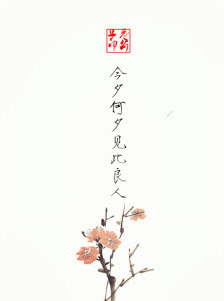 今夕何夕见此良人